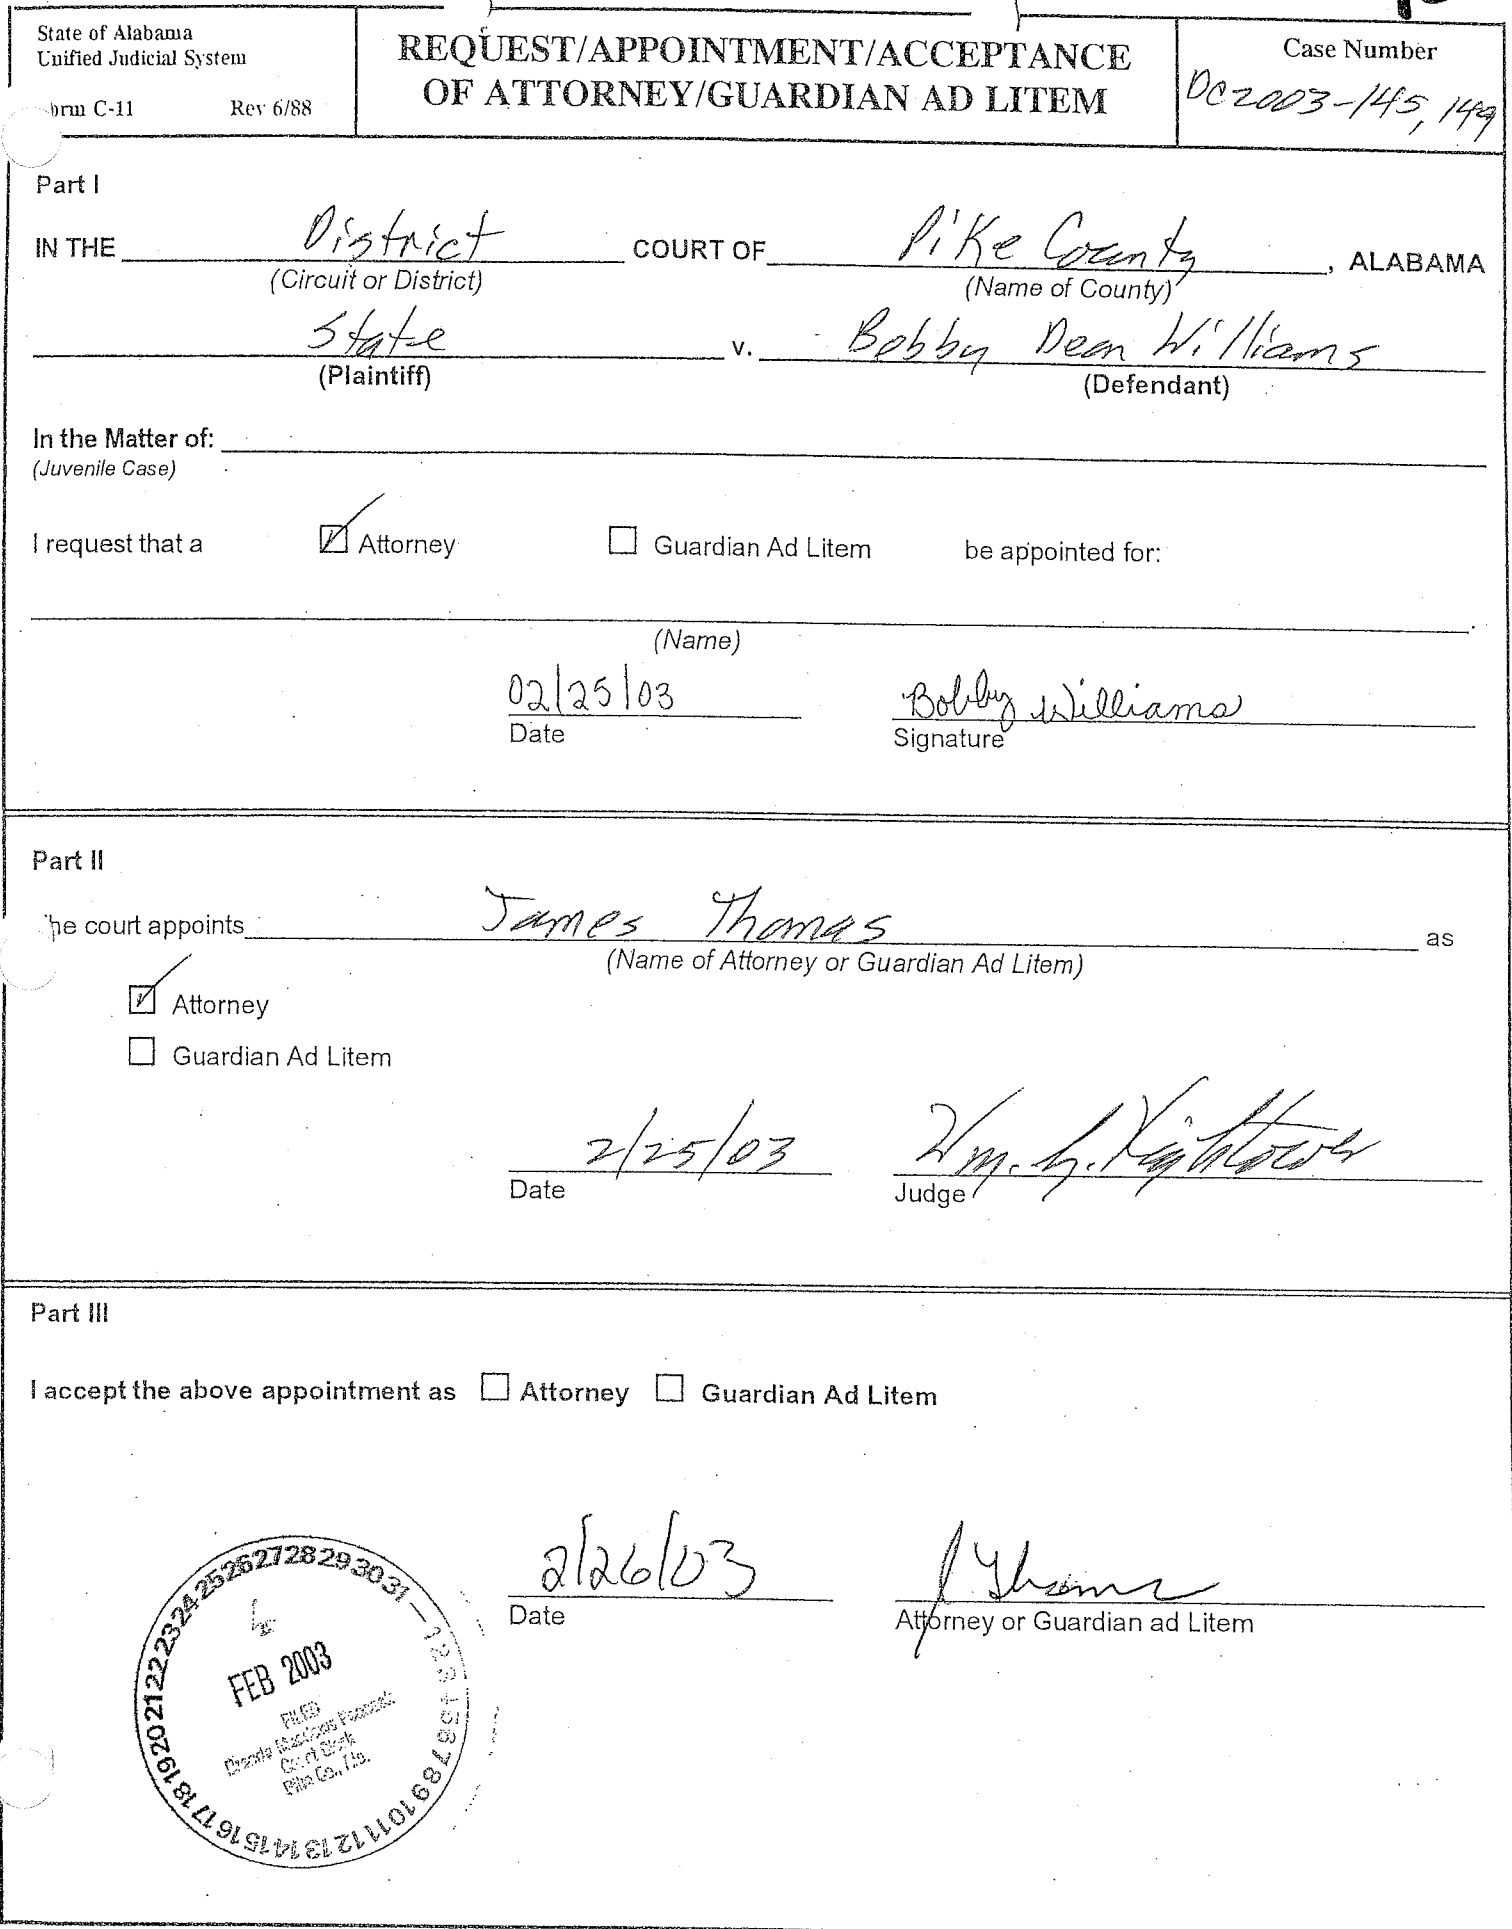 State of Alabama
Unified Judicial System
orm C-11 Rev 6/88
REQUEST/APPOINTMENT/ACCEPTANCE
OF ATTORNEY/GUARDIAN AD LITEM
Case Number
DC2003-145, 149
Part I
IN THE District COURT OF Pike County, ALABAMA
(Circuit or District) (Name of County)
State v. Bobby Dean Williams
(Plaintiff) (Defendant)
In the Matter of:
(Juvenile Case)
I request that a Attorney Guardian Ad Litem be appointed for:
(Name)
02/25/03 Bobby Williams
Date Signature
Part II
he court appoints James Thomas as
(Name of Attorney or Guardian Ad Litem)
Attorney
Guardian Ad Litem
2/25/03 Wm. G. Hightower
Date Judge
Part III
I accept the above appointment as Attorney Guardian Ad Litem
2/26/03 J Thomas
Date Attorney or Guardian ad Litem
1 2 3 4 5 6 7 8 9 10 11 12 13 14 15 16 17 18 19 20 21 22 23 24 25 26 27 28 29 30 31
FEB 2003
FILED
Court Clerk
Pike Co., Ala.